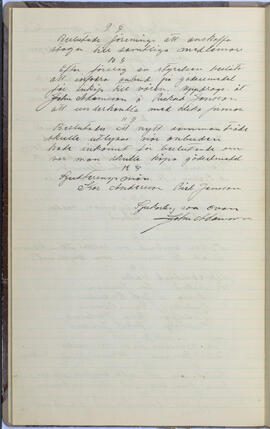 9 §
Beslutade föreningen att anskaffa
stagar till samtliga medlemar
10 §
Efter förslag av styrelsen beslöts
att infodra anbud på gödermedel
för inköp till våren. uppdrogs åt
John Adamsson & Rickard Jonsson
att underhandla med olika firmor
11 §
Beslutades att nytt sammanträde
skulle utlysas när anbuden
hade inkommit för beslutande om
var man skulle köpa gödermedel
12 §
Justeringsmän
Ivar Andersson Rick Jonsson
som ovan
John Adamsson